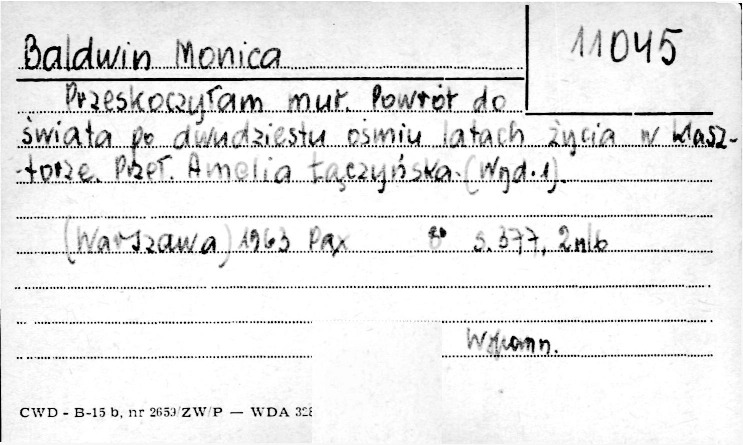 Baldwin Monica
11045
Przeskoczyłam mur. Powrót do
świata po dwudziestu ośmiu latach życia w klasz-
-torze. Przeł. Amelia Łączyńska. (Wyd. 1).
(Warszawa) 1963 Pax 8° s. 377, 2 nlb
CWD - B-15 b, nr 2659/ZW/P — WDA 328